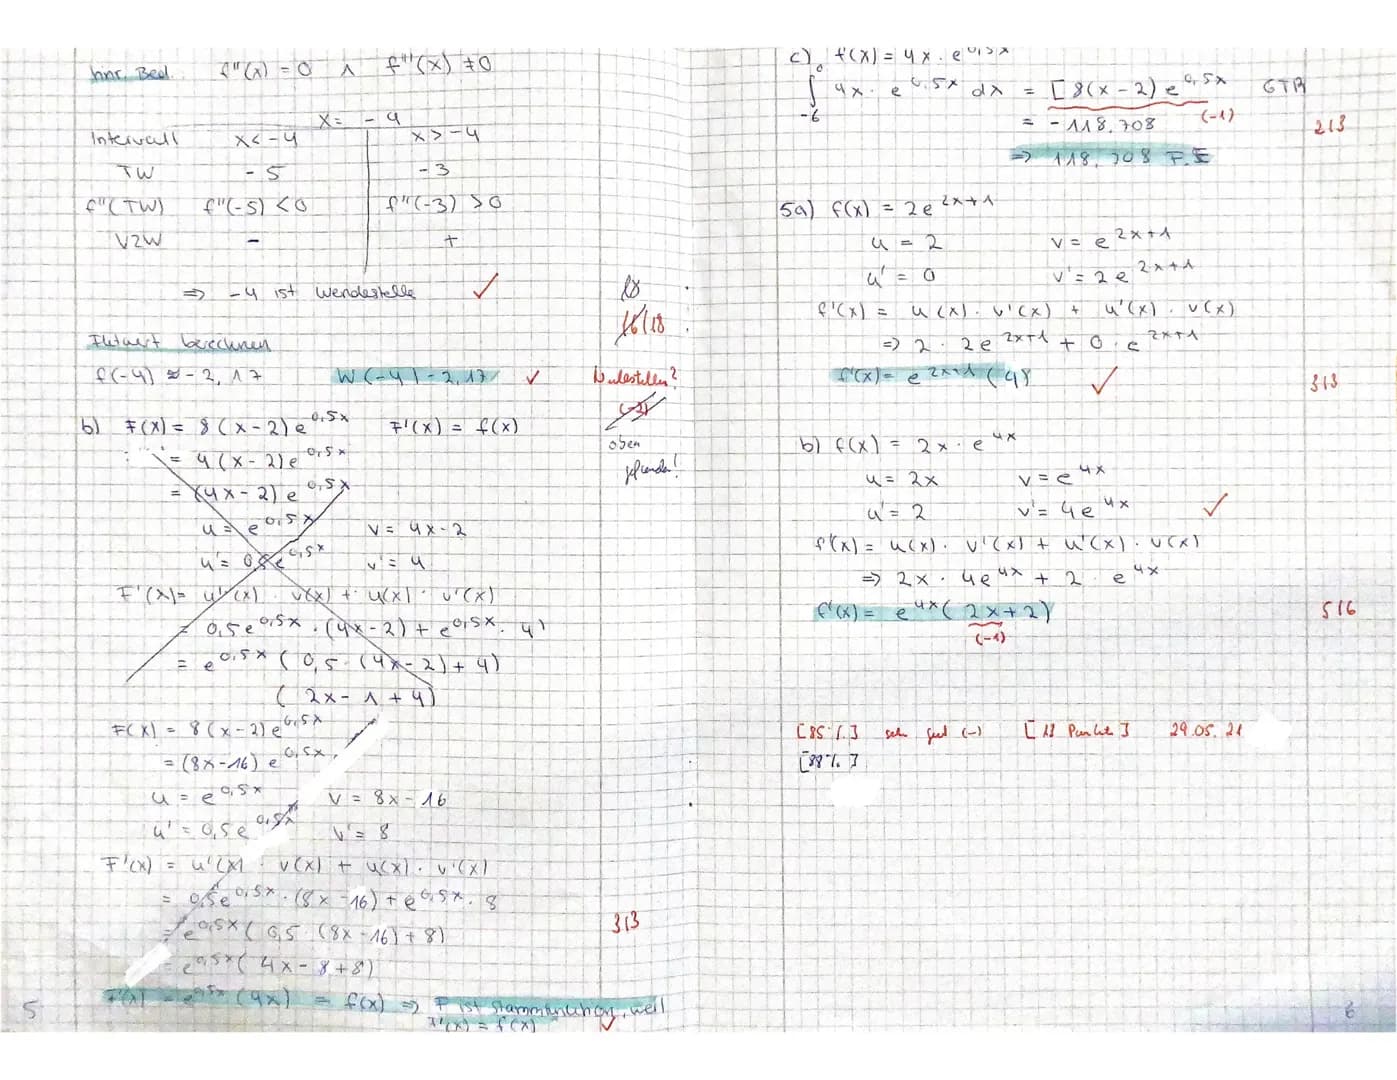 hinr. Bed. f"(x) = 0 ∧ f'"(x) ≠ 0
x = -4
Intervall x < -4 x > -4
TW -5 -3
f"(TW) f"(-5) < 0 f"(-3) > 0
VZW - +
=> -4 ist Wendestelle ✓
18
16/18
berechnen
f(-4) ≈ -2,17 W(-4|-2,17) ✓
Nullstellen?
(-2)
oben
gefunden!
b) F(x) = 8(x-2)e^0,5x F'(x) = f(x)
= 4(x-2)e^0,5x
= (4x-2)e^0,5x
u = e^0,5x v = 4x-2
u' = 0,5e^0,5x v' = 4
F'(x) = u'(x) · v(x) + u(x) · v'(x)
= 0,5e^0,5x · (4x-2) + e^0,5x · 4
= e^0,5x (0,5 · (4x-2) + 4)
(2x - 1 + 4)
F(x) = 8(x-2)e^0,5x
= (8x-16)e^0,5x
u = e^0,5x v = 8x-16
u' = 0,5e^0,5x v' = 8
F'(x) = u'(x) · v(x) + u(x) · v'(x)
= 0,5e^0,5x · (8x-16) + e^0,5x · 8
3/3
= e^0,5x (0,5 · (8x-16) + 8)
= e^0,5x (4x - 8 + 8)
F'(x) = e^0,5x (4x) = f(x) => F ist Stammfunktion, weil
F'(x) = f(x) ✓
5
c) f(x) = 4x · e^0,5x
∫ 0 -6 4x · e^0,5x dx = [8(x-2)e^0,5x GTR
(-1)
= -118,708
2/3
=> 118,708 F.E
5a) f(x) = 2e^2x+1
u = 2 v = e^2x+1
u' = 0 v' = 2e^2x+1
f'(x) = u(x) · v'(x) + u'(x) · v(x)
=> 2 · 2e^2x+1 + 0 · e^2x+1
f'(x) = e^2x+1 (4) ✓ 3/3
b) f(x) = 2x · e^4x
u = 2x v = e^4x
u' = 2 v' = 4e^4x ✓
f'(x) = u(x) · v'(x) + u'(x) · v(x)
=> 2x · 4e^4x + 2 · e^4x
f'(x) = e^4x (2x+2) 5/6
(-1)
[85%] sehr gut (-) [13 Punkte] 29.05.21
[88%]
6